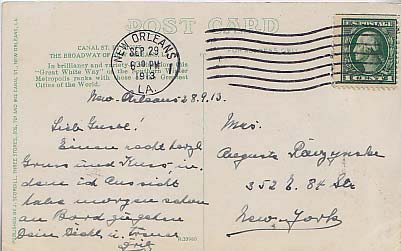 POST CARD
CANAL ST.
THE BROADWAY OF
In brilliancy and variety
"Great White Way" of the Southern Winter
Metropolis ranks with those of the Greatest
Cities of the World.
NEW ORLEANS
SEP. 29
6:30 PM
1913
LA.
New-Orleans 28.9.13.
Einen recht herzl
Gruss und Kuss. In-
dem ich Aussicht
habe morgen schon
an Bord zu gehen
Dein Dich l. u. treuer
Mrs.
Auguste
352 E. 84 Str
New-York
R-33980